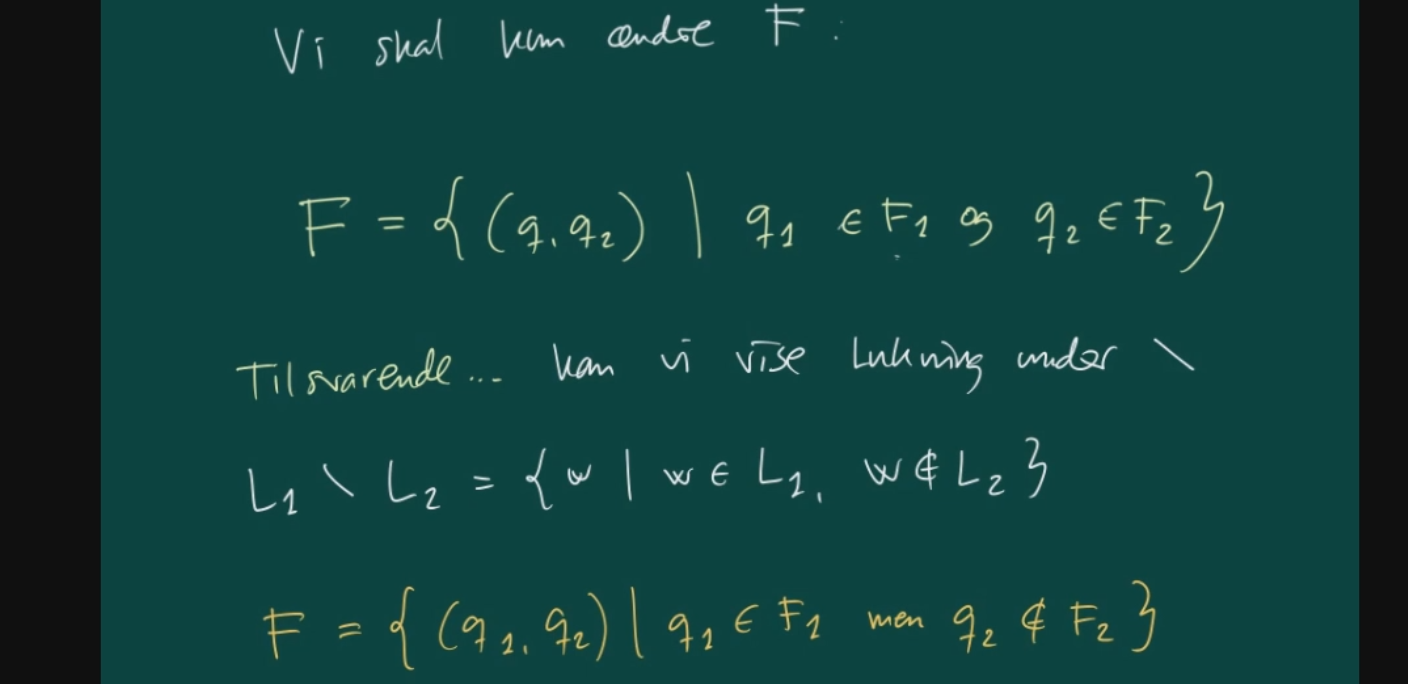 Vi skal kun ændre F :
F = { (q₁, q₂) | q₁ ∈ F₁ og q₂ ∈ F₂ }
Tilsvarende... kan vi vise lukning under \
L₁ \ L₂ = { w | w ∈ L₁, w ∉ L₂ }
F = { (q₁, q₂) | q₁ ∈ F₁ men q₂ ∉ F₂ }